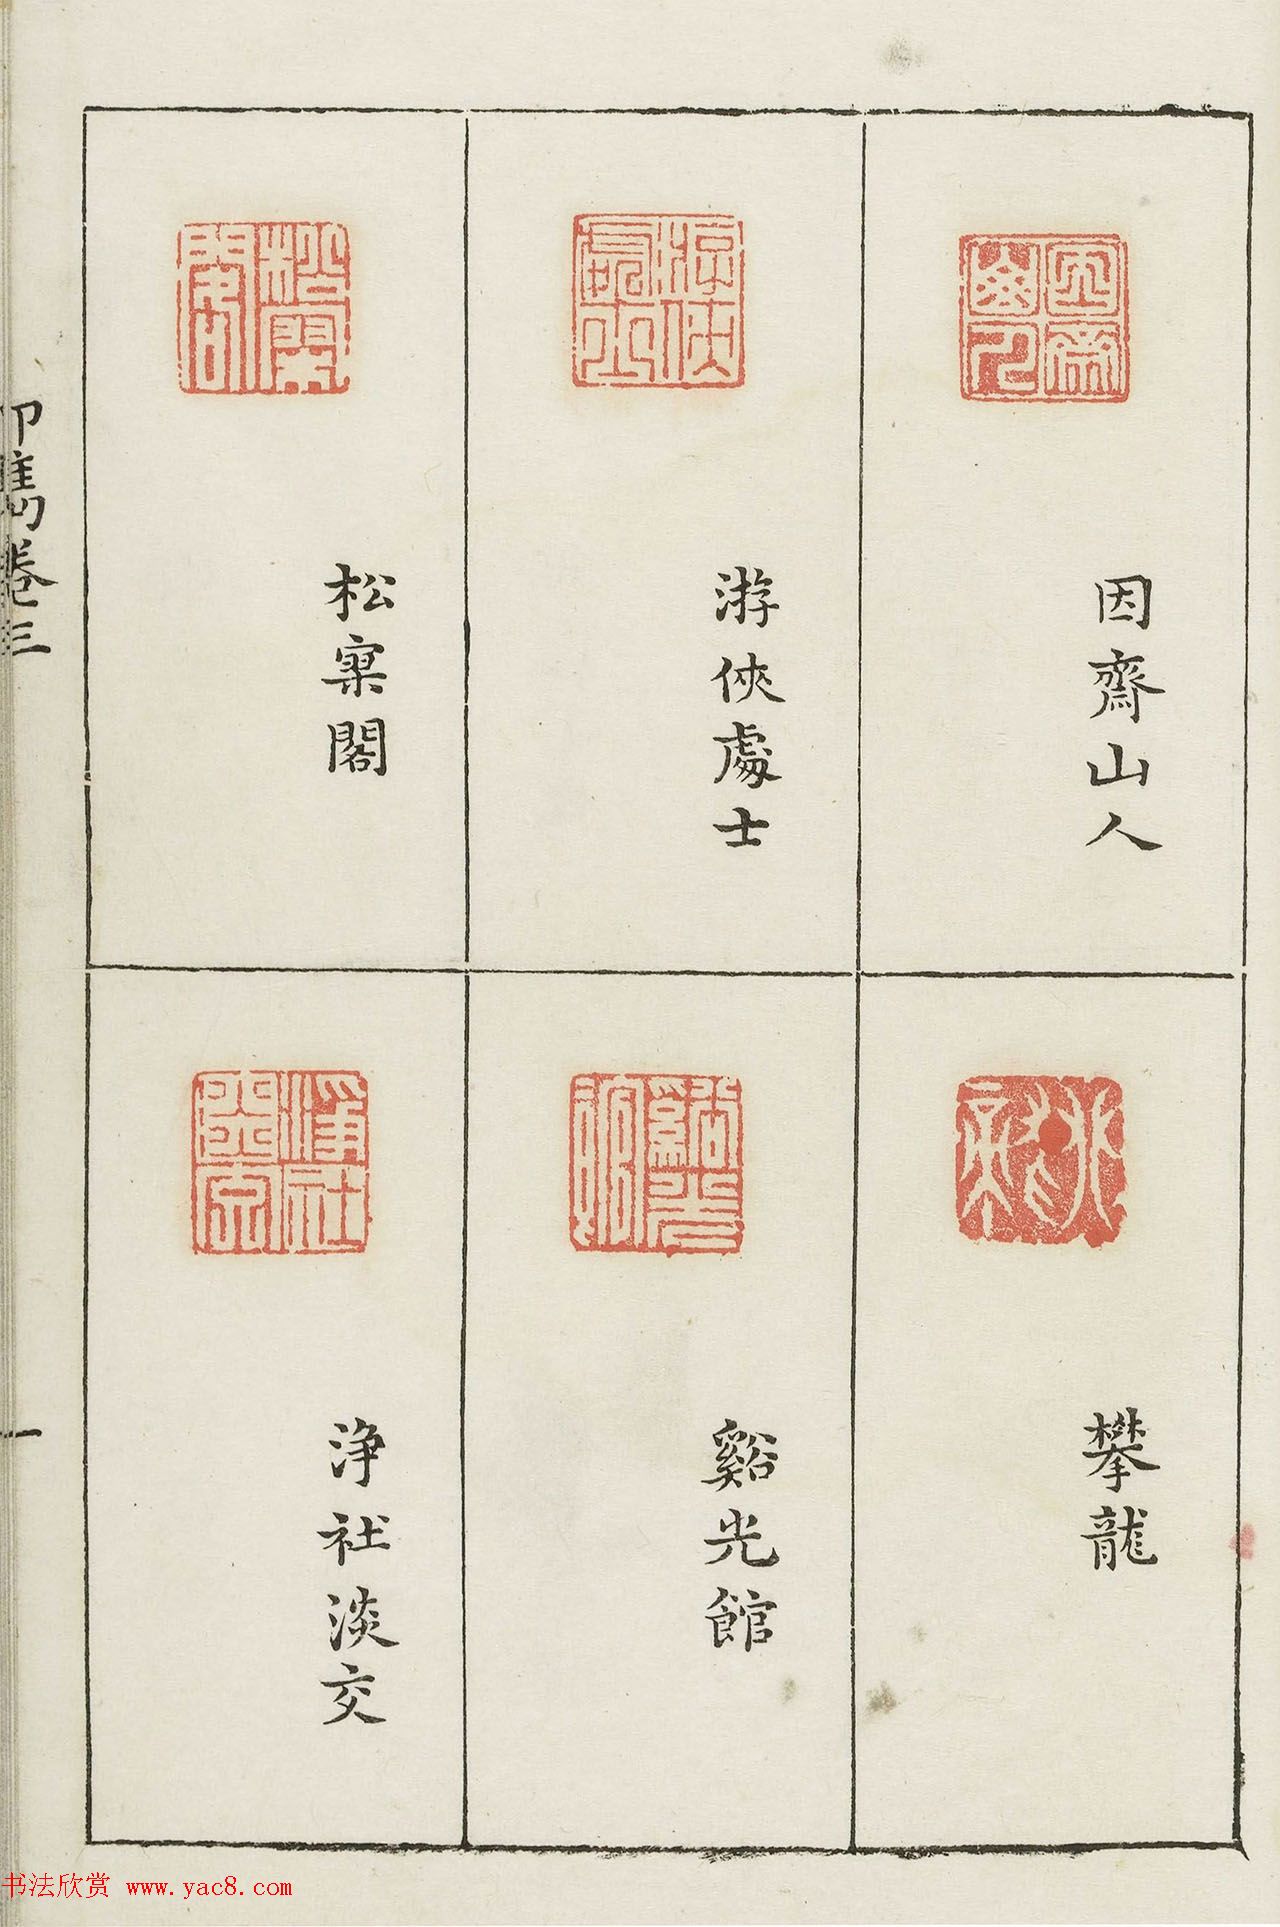 因齋山人
游俠處士
松㝥閣
攀龍
谿光館
淨社淡交
印雋卷三
一
书法欣赏 www.yac8.com